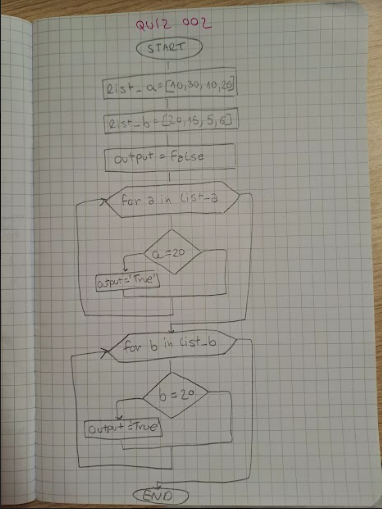 QUIZ 002
START
list_a=[10,30,10,20]
list_b=[20,15,5,6]
output = False
for a in list_a
a=20
output='True'
for b in list_b
b=20
output='True
END